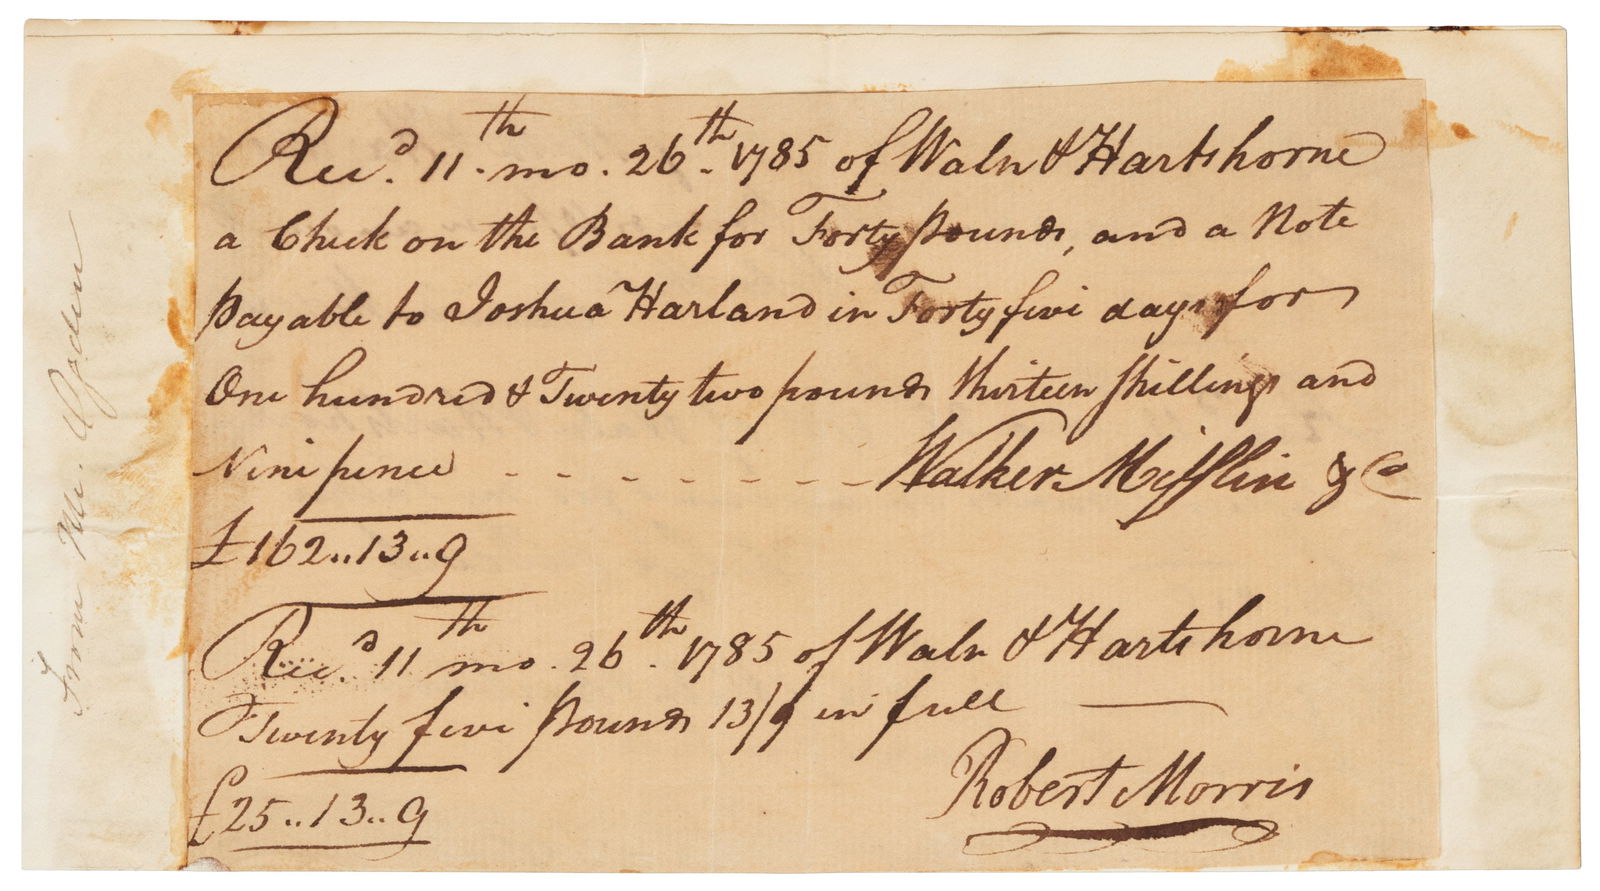 Recd. 11th. mo. 26th. 1785 of Waln & Hartshorne
a Check on the Bank for Forty pounds, and a Note
Payable to Joshua Harland in Forty five days for
One hundred & Twenty two pounds thirteen shillings and
Nine pence - - - - - - - Walker Mifflin & Co
£162..13..9
Recd. 11th mo. 26th. 1785 of Waln & Hartshorne
Twenty five pounds 13/9 in full
£25..13..9
Robert Morris
From Mr. Ogden